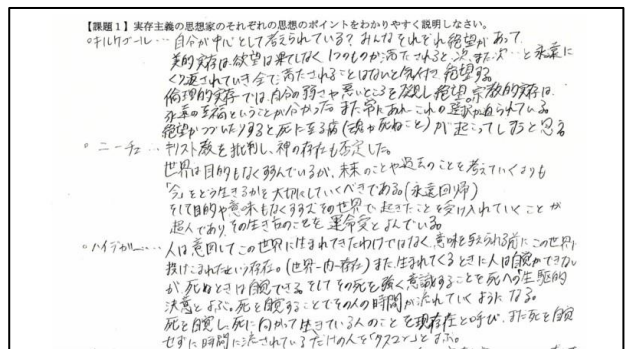 【課題1】実存主義の思想家のそれぞれの思想のポイントをわかりやすく説明しなさい。
○キルケゴール… 自分が中心として考えられている?みんなそれぞれ絶望があって、
美的実存は、欲望は果てしなく1つのものが満たされると、次、また次…と永遠に
くり返されていき全て満たされることはないと気付いて絶望する。
倫理的実存では、自分の弱さや悪いところを発見し絶望。宗教的実存は、
ということが分かった。また常にあれこれの選択が迫られている。
絶望がつづいたりすると死に至る病(魂が死ぬこと)が起こってしまうと思う
○ニーチェ… キリスト教を批判し、神の存在も否定した。
世界は目的もなく が、未来のことや過去のことを考えていくよりも
「今」をどう生きるかを大切にしていくべきである。(永遠回帰)
そして目的や意味もなくその世界で起きたことを受け入れていくことが
超人であり、その生き方のことを運命愛とよんでいる。
○ハイデガー… 人は、意図してこの世界に生まれてきたわけではなく、意味を与えられる前にこの世界に
投げこまれたという存在。(世界-内-存在)また、生まれてくるときに人は自覚ができない
が死ぬときは自覚できる。そしてその死を強く意識することを死への先駆的
決意とよぶ。死を自覚することでその人の時間が流れていくようになる。
死を自覚し、死に向かって生きている人のことを現存在と呼び、また死を自覚
せずに時間に流されているだけの人を「ダスマン」とよぶ。